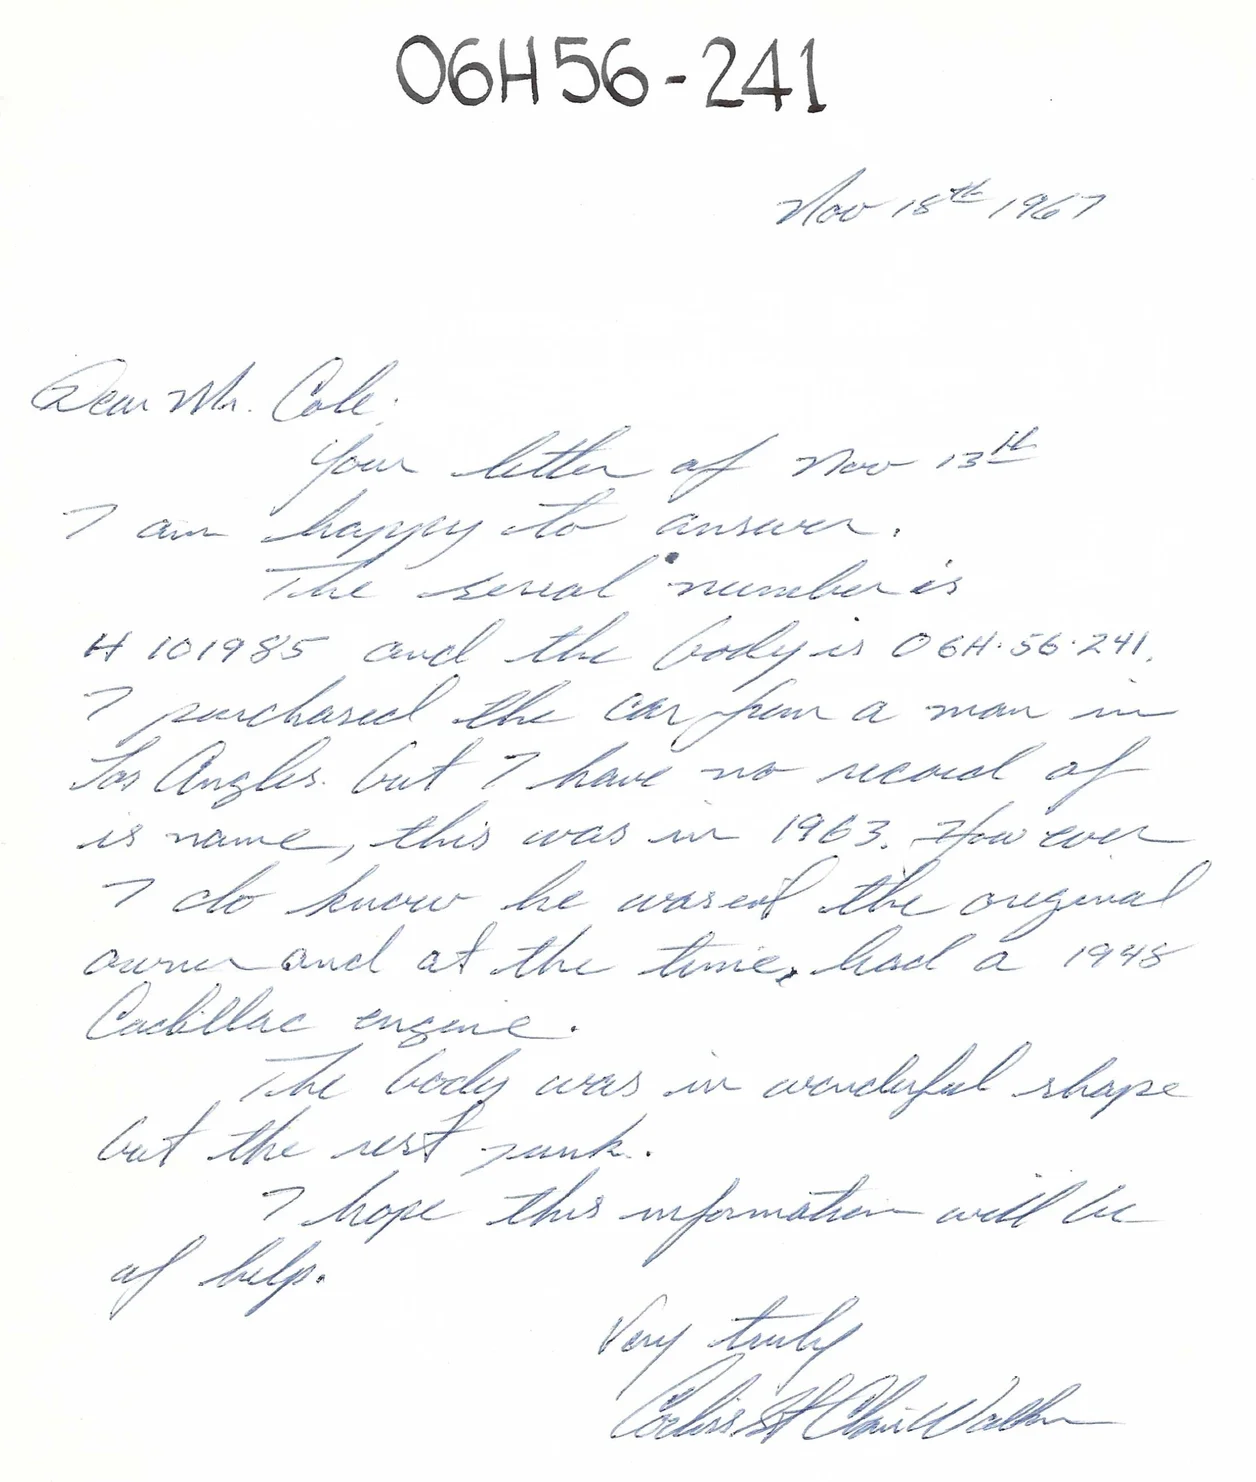 06H56-241
Nov 18th 1967
Dear Mr. Cole.
Your letter of Nov 13th
I am happy to answer.
The serial number is
H 101985 and the body is 06H·56·241.
I purchased the car from a man in
Los Angles. but I have no record of
is name, this was in 1963. However
I do know he wasent the original
owner and at the time, had a 1948
Cadillac engine.
The body was in wonderful shape
but the rest junk.
I hope this information will be
of help.
Very truly
Corliss St Clair Walker